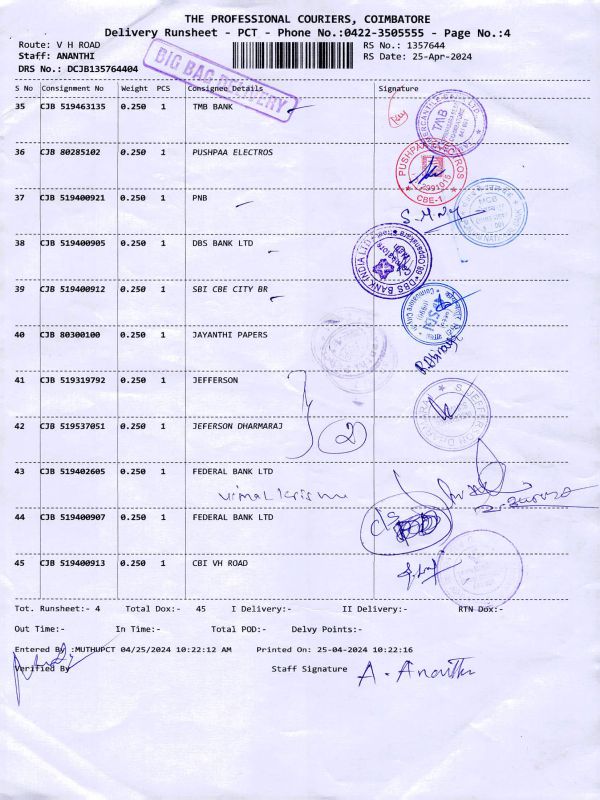 THE PROFESSIONAL COURIERS, COIMBATORE
Delivery Runsheet - PCT - Phone No.:0422-3505555 - Page No.:4
Route: V H ROAD RS No.: 1357644
Staff: ANANTHI RS Date: 25-Apr-2024
DRS No.: DCJB135764404
BIG BAG DELIVERY
S No Consignment No Weight PCS Consignee Details Signature
35 CJB 519463135 0.250 1 TMB BANK
TMB
36 CJB 80285102 0.250 1 PUSHPAA ELECTROS
PUSHPAA ELECTROS
CBE-1
37 CJB 519400921 0.250 1 PNB
38 CJB 519400905 0.250 1 DBS BANK LTD
DBS BANK INDIA LTD
39 CJB 519400912 0.250 1 SBI CBE CITY BR
40 CJB 80300100 0.250 1 JAYANTHI PAPERS
41 CJB 519319792 0.250 1 JEFFERSON
S. JEFFERSON DHARMARAJ
42 CJB 519537051 0.250 1 JEFERSON DHARMARAJ
2
43 CJB 519402605 0.250 1 FEDERAL BANK LTD
44 CJB 519400907 0.250 1 FEDERAL BANK LTD
45 CJB 519400913 0.250 1 CBI VH ROAD
Tot. Runsheet:- 4 Total Dox:- 45 I Delivery:- II Delivery:- RTN Dox:-
Out Time:- In Time:- Total POD:- Delvy Points:-
Entered By :MUTHUPCT 04/25/2024 10:22:12 AM Printed On: 25-04-2024 10:22:16
Verified By Staff Signature A. Ananthi